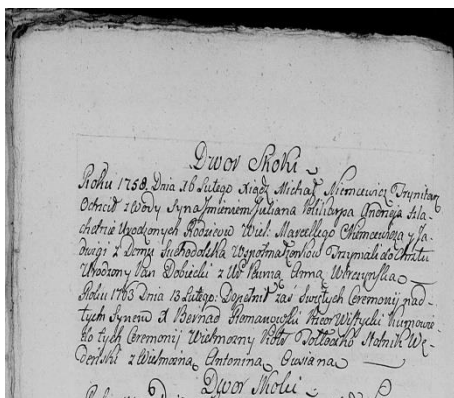 Dwor Skoki
Roku 1758. Dnia 16 Lutego Xiądz Michał Niemcewicz Trynitarz
Ochrcił z Wody Syna Imieniem Juliana Polikarpa Andrzeja szla-
chetnie Urodzonych Rodzicow Wiel: Marcellego Niemcewicza y Ja-
dwigi z Domu Suchodolska Wspołmałżonkow Trzymali do Chrztu
Urodzony Pan Dobiecki z Ur Panną Anną
Roku 1763 Dnia 13 Lutego: Dopełnił zaś Swiętych Ceremonij nad
tych Synem X Bernad Przeor Wistycki Kumowie
do tych Ceremonij Wielmozny Piotr Stolnik Wę-
denski z Wielmozną Antoniną
Dwor Skoki